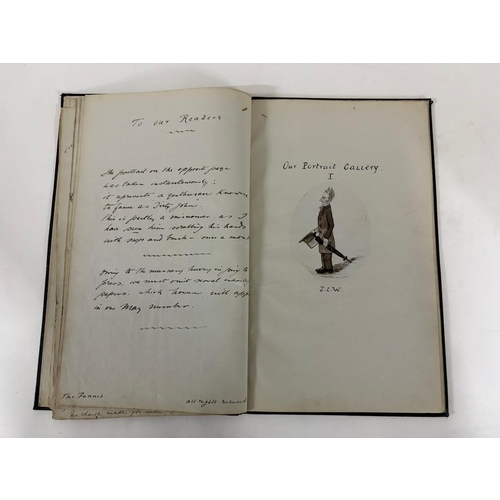 To our Readers
The portrait on the opposite page
was taken instantaneously:
it represents a gentleman known
to fame as Dirty John.
This is partly a misnomer as I
have seen him scrubbing his hands
with soap and brush - once a
Owing to the necessary hurry in to
press, we must omit several
papers, which however will
in our May number.
The
all rights reserved
Our Portrait Gallery.
I
J.L.W.